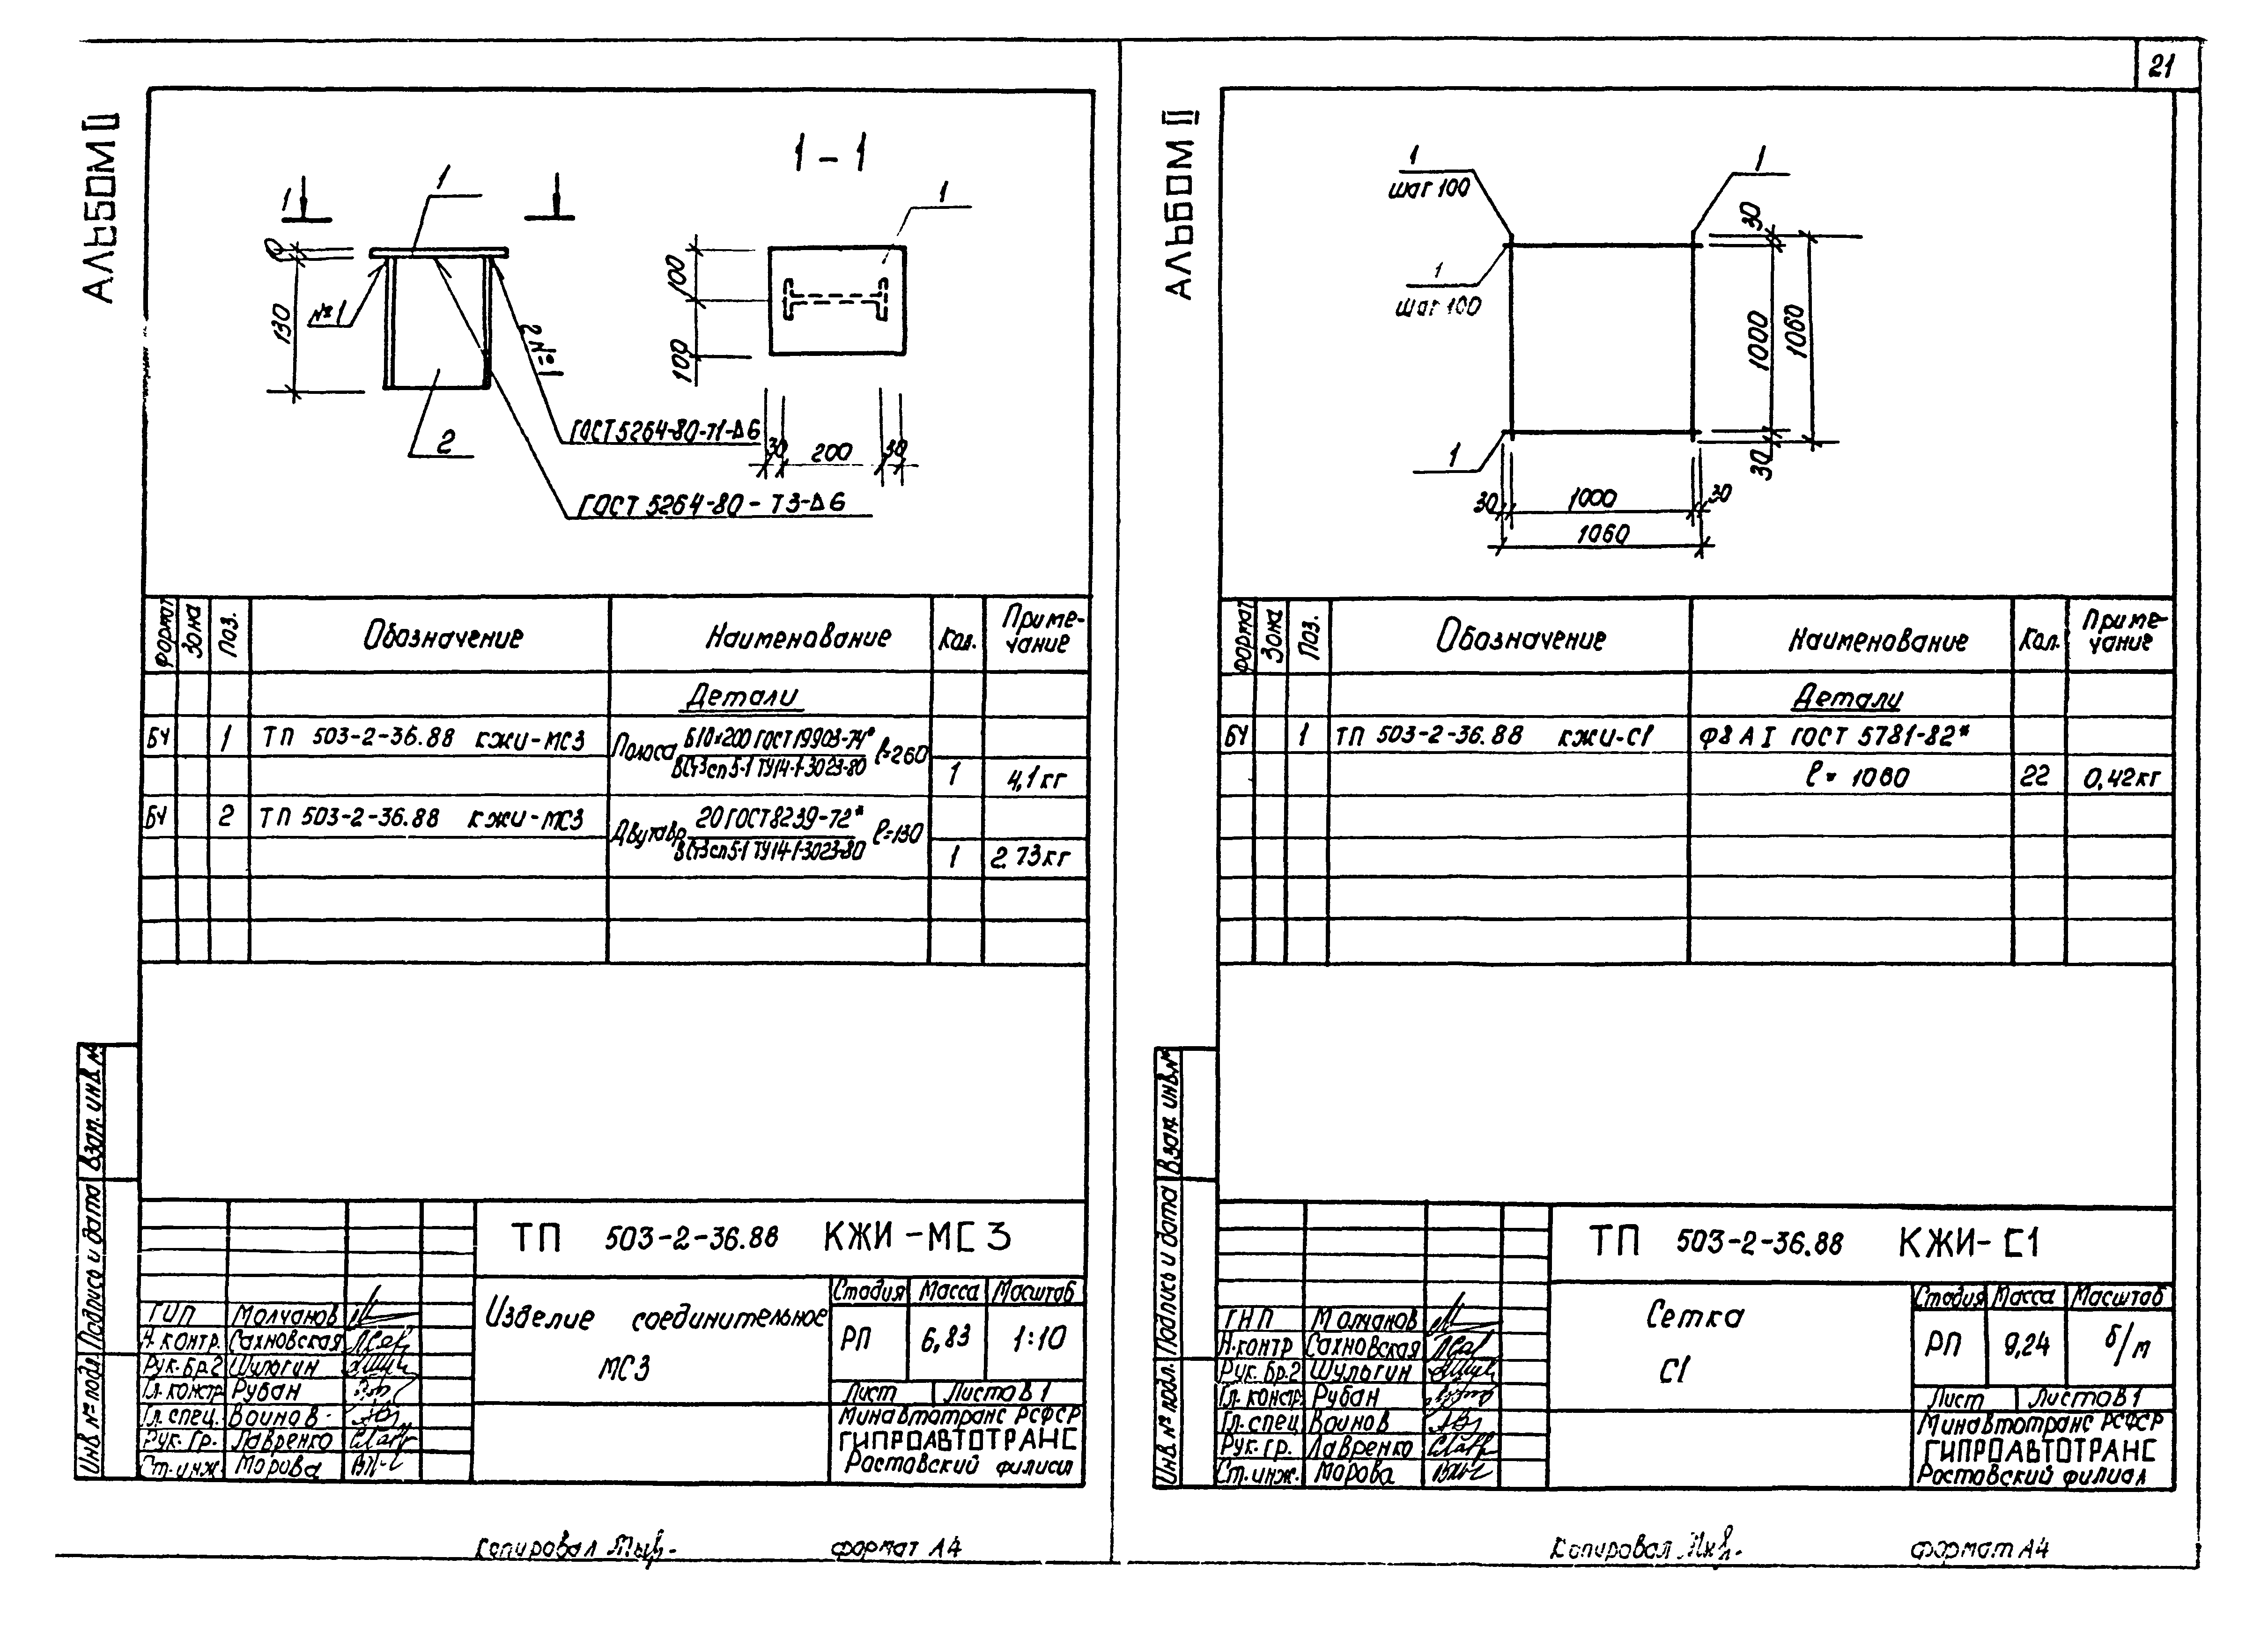 21
АЛЬБОМ II
1-1
1
1
10
130
№1
2
ГОСТ 5264-80-Т1-Δ6
ГОСТ 5264-80-Т3-Δ6
1
100
100
30
200
30
Формат
Зона
Поз.
Обозначение
Наименование
Кол.
Приме-
чание
Детали
БЧ 1 ТП 503-2-36.88 КЖИ-МС3 Полоса Б10х200 ГОСТ 19903-74* ℓ=260
ВСт3сп5-1 ТУ14-1-3023-80 1 4,1кг
БЧ 2 ТП 503-2-36.88 КЖИ-МС3 Двутавр 20 ГОСТ 8239-72* ℓ=130
ВСт3сп5-1 ТУ14-1-3023-80 1 2,73кг
Взам. инв.№
Подпись и дата
Инв. № подл.
ТП 503-2-36.88 КЖИ-МС3
Изделие соединительное
МС3
Стадия Масса Масштаб
РП 6,83 1:10
Лист Листов 1
Минавтотранс РСФСР
ГИПРОАВТОТРАНС
Ростовский филиал
ГИП Молчанов
Н.контр. Сахновская
Рук.бр.2 Шульгин
Гл.констр Рубан
Гл.спец. Воинов
Рук.гр. Лавренко
Ст.инж. Морова
Копировал
формат А4
АЛЬБОМ II
1
шаг 100
1
1
шаг 100
1
30
1000
1060
30
30
1000
30
1060
Формат
Зона
Поз.
Обозначение
Наименование
Кол.
Приме-
чание
Детали
БЧ 1 ТП 503-2-36.88 КЖИ-С1 Ф8 А I ГОСТ 5781-82*
ℓ= 1060 22 0,42кг
Взам. инв.№
Подпись и дата
Инв. № подл.
ТП 503-2-36.88 КЖИ-С1
Сетка
С1
Стадия Масса Масштаб
РП 9,24 б/м
Лист Листов 1
Минавтотранс РСФСР
ГИПРОАВТОТРАНС
Ростовский филиал
ГИП Молчанов
Н.контр Сахновская
Рук.бр.2 Шульгин
Гл.констр. Рубан
Гл.спец Воинов
Рук.гр. Лавренко
Ст.инж. Морова
Копировал
формат А4